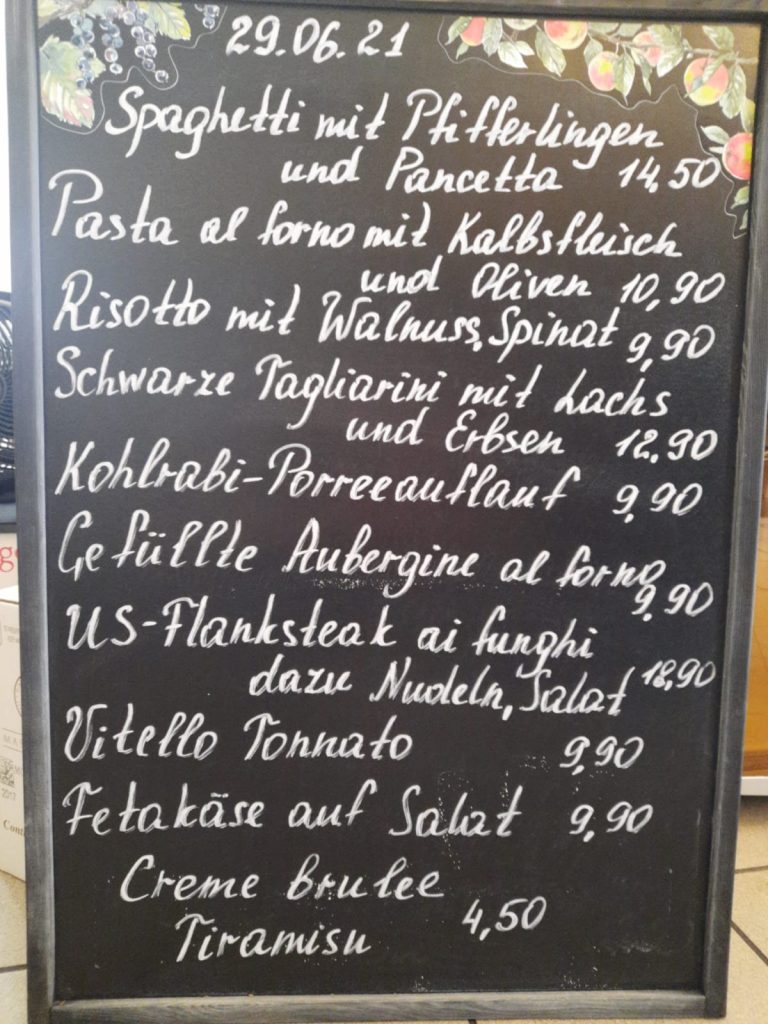 29.06.21
Spaghetti mit Pfifferlingen
und Pancetta 14,50
Pasta al forno mit Kalbsfleisch
und Oliven 10,90
Risotto mit Walnuss, Spinat 9,90
Schwarze Tagliarini mit Lachs
und Erbsen 12.90
Kohlrabi-Porreeauflauf 9,90
Gefüllte Aubergine al forno
9,90
US-Flanksteak ai funghi
dazu Nudeln, Salat 18,90
Vitello Tonnato 9,90
Fetakäse auf Salat 9,90
Creme brulee
4,50
Tiramisu